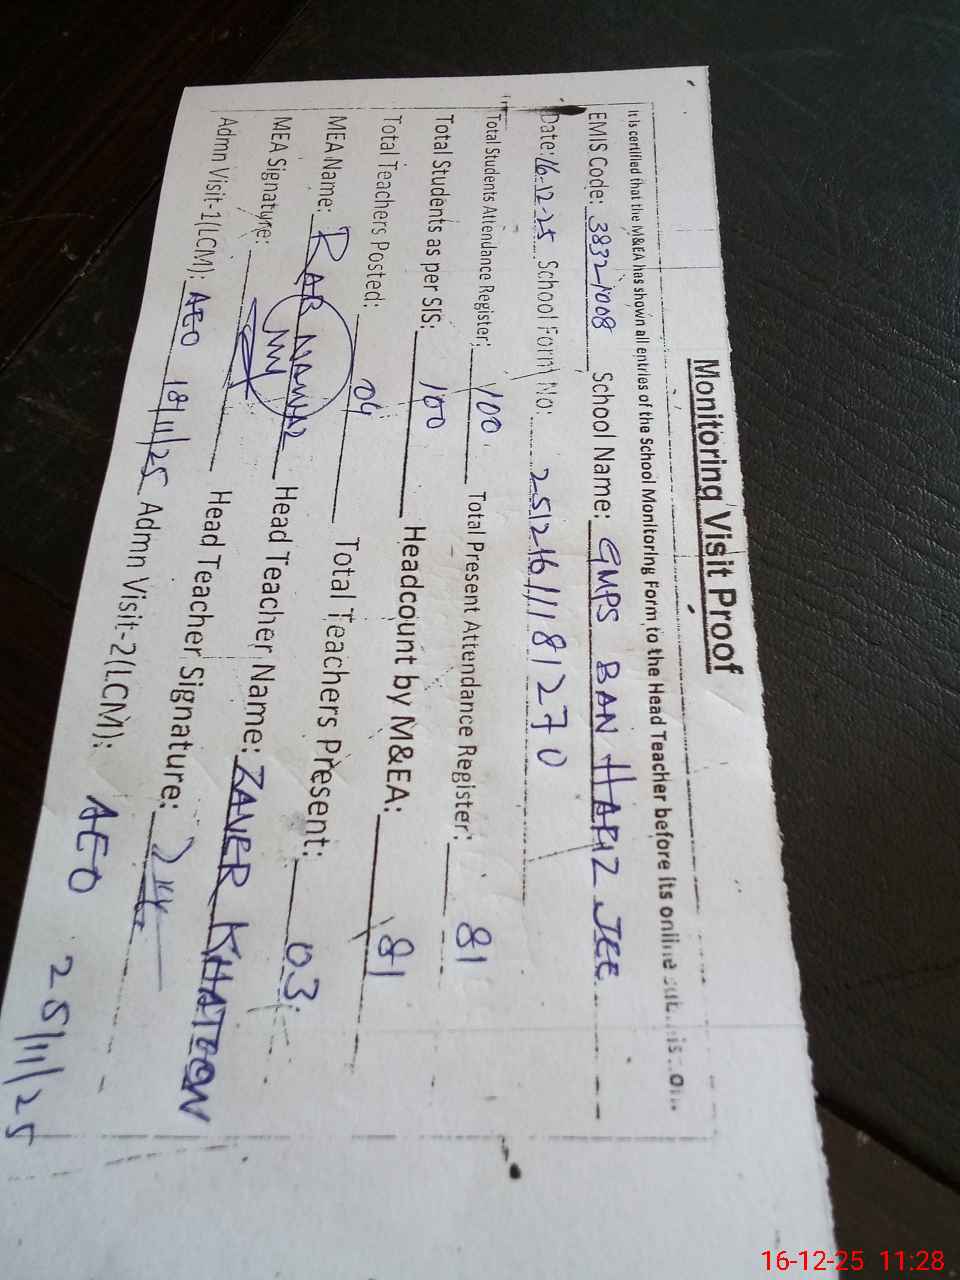 Monitoring Visit Proof
It is certified that the M&EA has shown all entries of the School Monitoring Form to the Head Teacher before its online submission.
EMIS Code: 38321008 School Name: GMPS BAN HAFIZ JEE
Date: 16-12-25 School Form No: 25121611181270
Total Students Attendance Register: 100 Total Present Attendance Register: 81
Total Students as per SIS: 100 Headcount by M&EA: 81
Total Teachers Posted: 04 Total Teachers Present: 03
MEA Name: RAB NAWAZ Head Teacher Name: ZAVER KHATOON
MEA Signature: Head Teacher Signature:
Admn Visit-1(LCM): AEO 18/11/25 Admn Visit-2(LCM): AEO 25/11/25
16-12-25 11:28